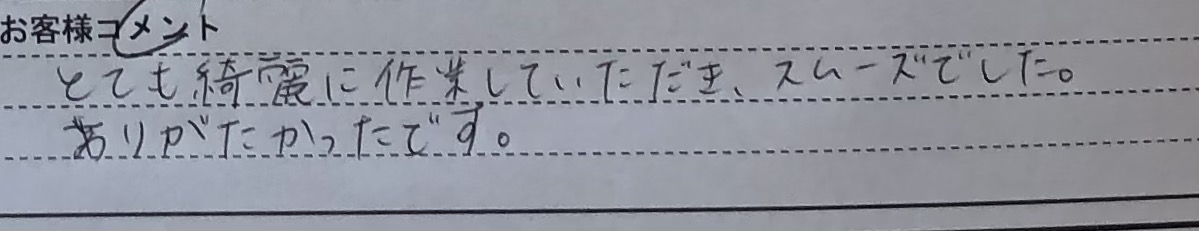 お客様コメント
とても綺麗に作業していただき、スムーズでした。
ありがたかったです。